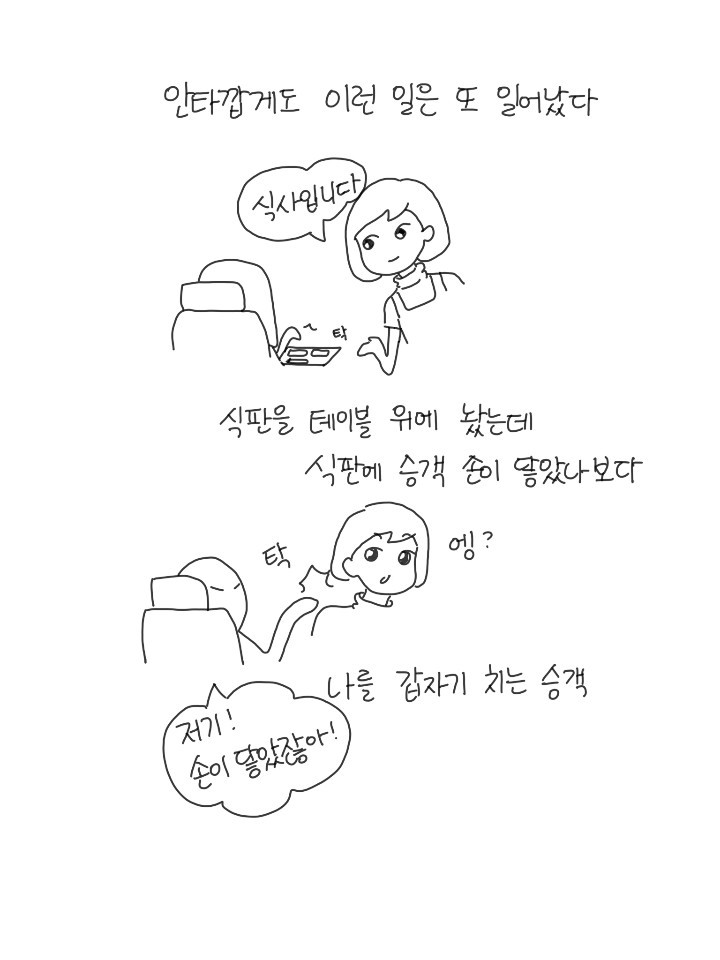 안타깝게도 이런 일은 또 일어났다
식사입니다
탁
식판을 테이블 위에 놨는데
식판에 승객 손이 닿았나보다
탁
엥?
나를 갑자기 치는 승객
저기!
손이 닿았잖아!